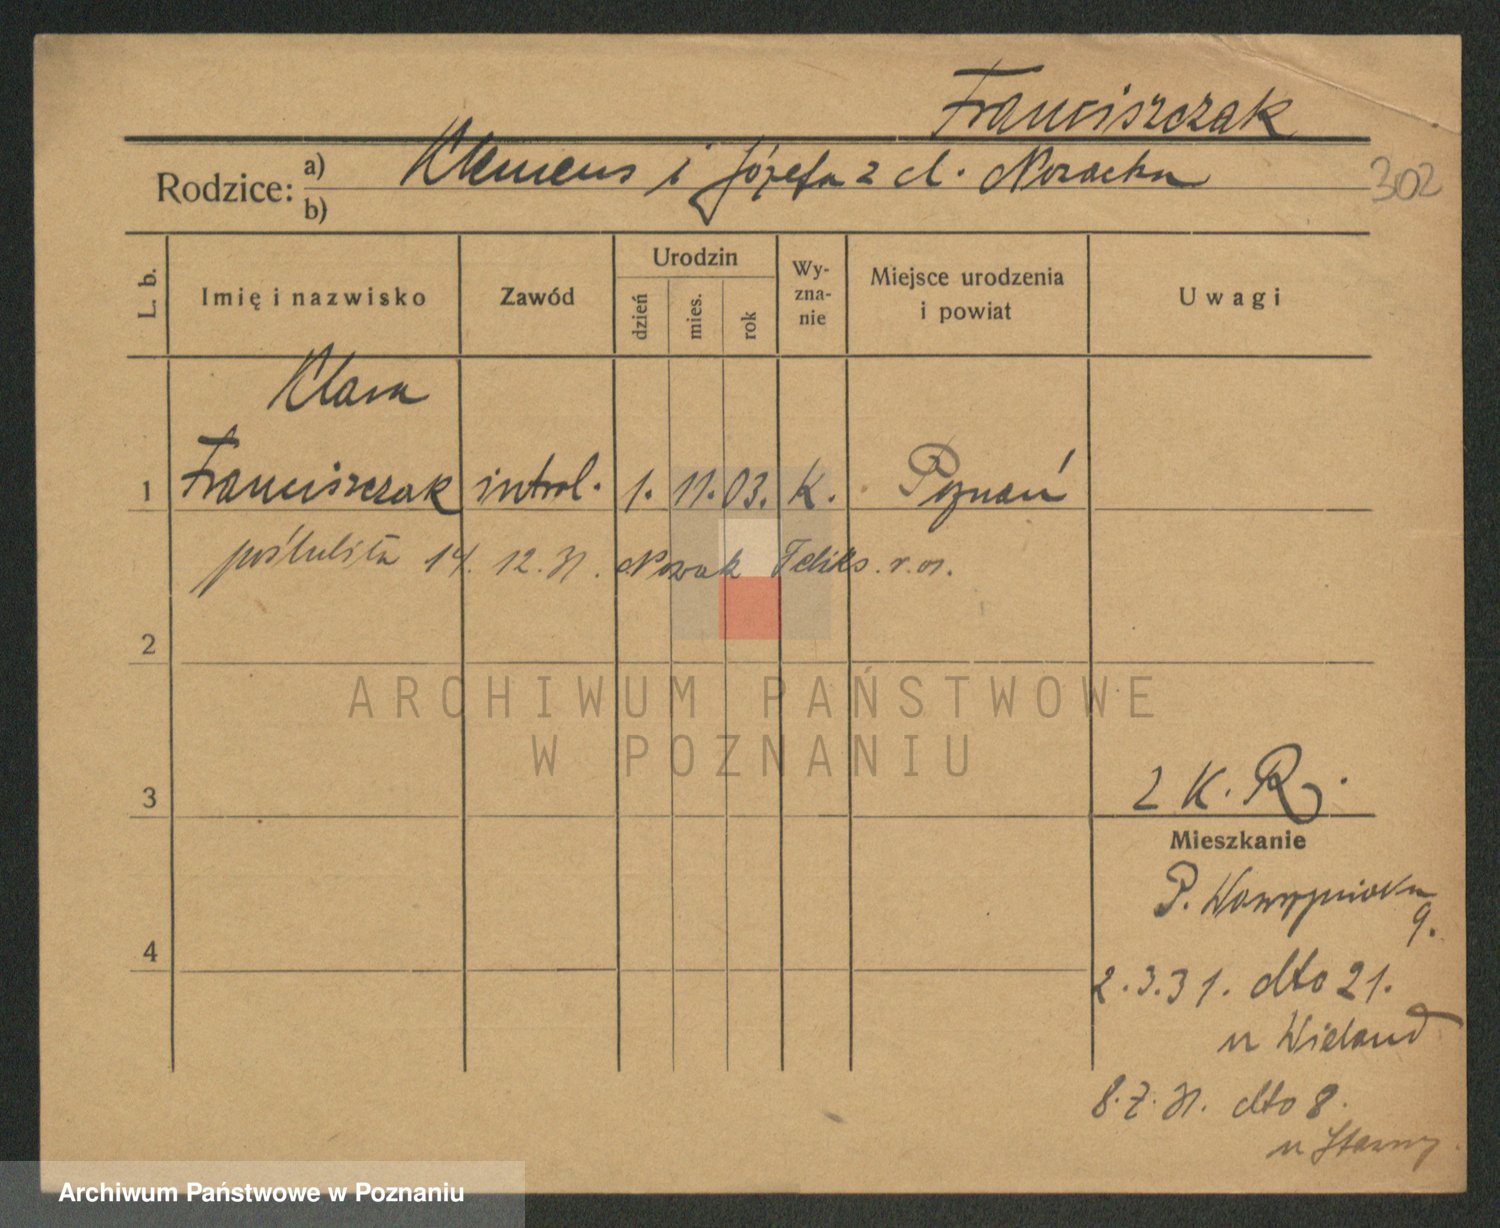 Franciszczak
Rodzice: a) Klemens i Józefa z d. Nowacka
b)
302
L. b. Imię i nazwisko Zawód Urodzin dzień mies. rok Wy-zna-nie Miejsce urodzenia i powiat Uwagi
Klara
1 Franciszczak introl. 1. 11. 03. K. Poznań
poślubiła 14. 12. 31. Nowak Feliks r. os.
2
ARCHIWUM PAŃSTWOWE
W POZNANIU
3 2 K. R.
Mieszkanie
P. Wawrzyniaka
9.
4
2.3.31. dto 21.
u Wieland
8.7.31. dto 8.
u
Archiwum Państwowe w Poznaniu